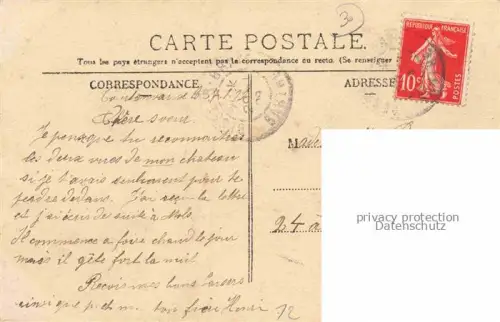 30
CARTE POSTALE.
Tous les pays étrangers n'acceptent pas la correspondance au recto. (Se renseigner
CORRESPONDANCE
ADRESSE
REPUBLIQUE FRANÇAISE
10c
POSTES
Chère sœur
Je pense que tu reconnaitras
les deux vues de mon chateau
si je t'avais seulement pour te
perdre dedans. J'ai reçu ta lettre
et j'écris de suite à
Il commence a faire chaud le jour
mais il gèle fort la nuit
Recois mes bons baisers
ainsi que p. et m. ton frère Henri
24
72
privacy protection
Datenschutz